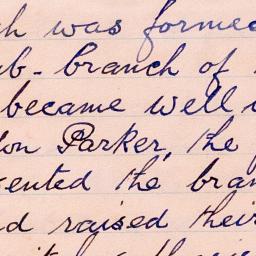 was formed
sub-branch of
became well
Parker, the
sented the bran
d raised their